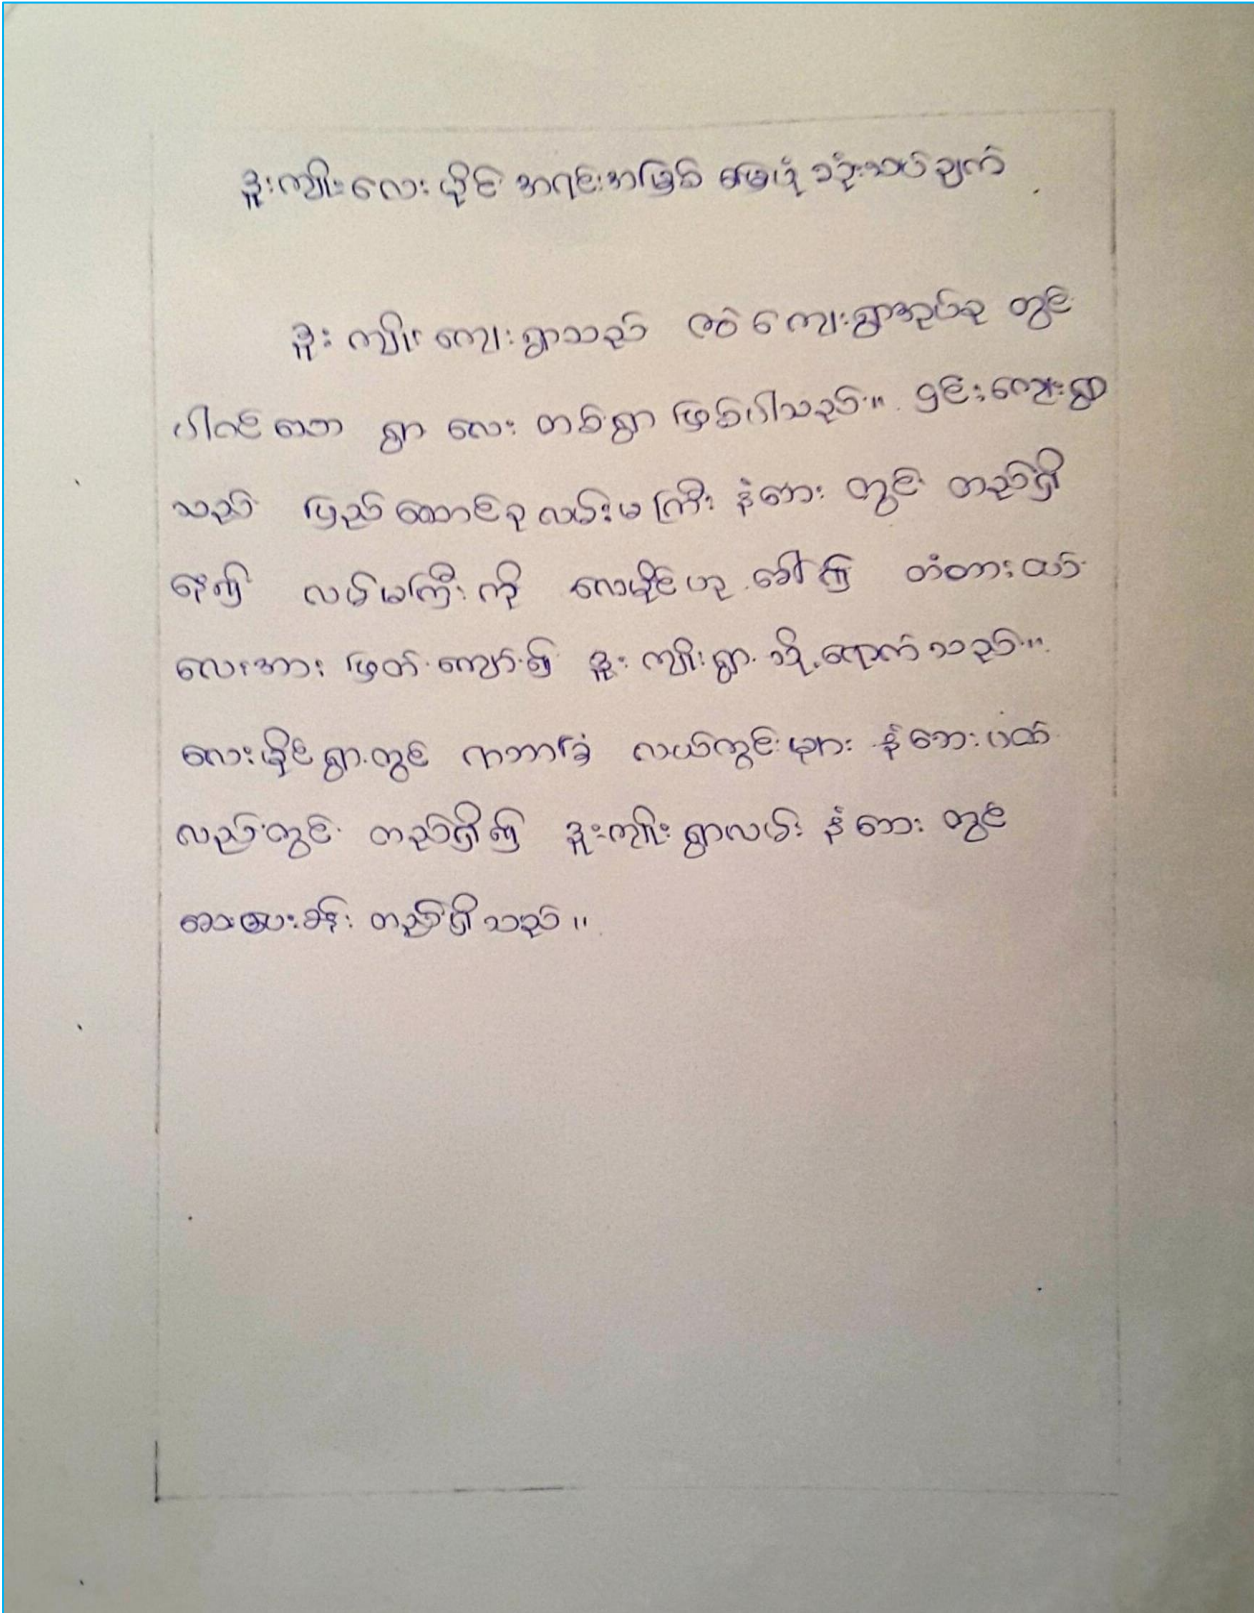 ဒူးကျိုးလေးမိုင် အရင်းအမြစ် မြေပုံ သုံးသပ်ချက်
ဒူးကျိုးကျေးရွာသည် ဇဝဲ ကျေးရွာအုပ်စု တွင်
ပါဝင်သော ရွာ လေး တစ်ရွာ ဖြစ်ပါသည်။ ၎င်းကျေးရွာ
သည် ပြည်ထောင်စုလမ်းမကြီး နံဘေး တွင် တည်ရှိ
နေ၍ လမ်မကြီးကို လေးမိုင်ဟု ခေါ်၍ တံတားထပ်
လေးအား ဖြတ်ကျော်၍ ဒူးကျိုးရွာသို့ရောက်သည်။
လေးမိုင်ရွာတွင် ရာဘာခြံ လယ်ကွင်းများ နံဘေးပတ်
လည်တွင် တည်ရှိ၍ ဒူးကျိုးရွာလမ်း နံဘေး တွင်
ဆေးပေးခန်း တည်ရှိသည်။